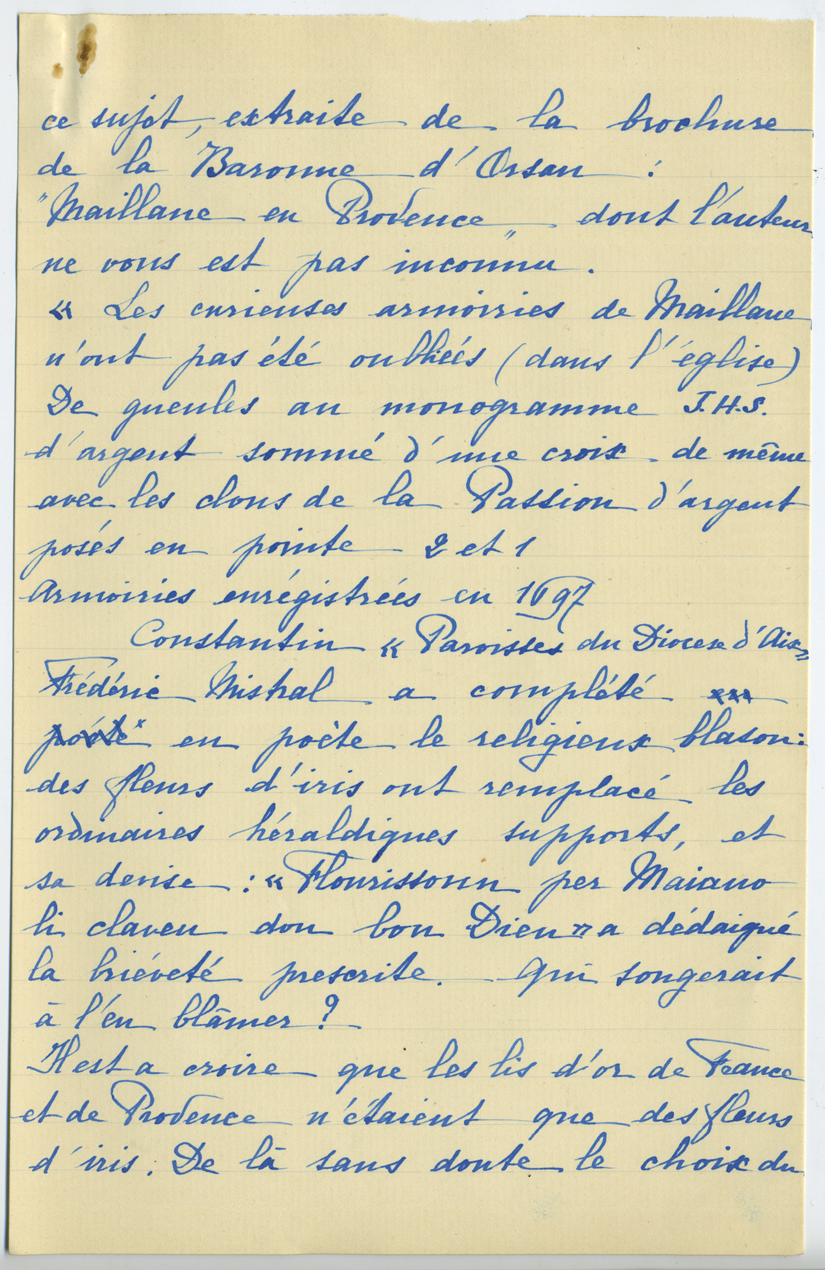 ce sujet, extraite de la brochure
de la Baronne d'Orsan :
"Maillane en Provence" dont l'auteur
ne vous est pas inconnu.
« Les curieuses armoiries de Maillane
n'ont pas été oubliées (dans l'église)
De gueules au monogramme J.H.S.
d'argent sommé d'une croix de même
avec les clous de la Passion d'argent
posés en pointe 2 et 1
Armoiries enrégistrées en 1697
Constantin « Paroisses du Diocese d'Aix »
Frédéric Mistral a complété
poète en poète le religieux blason :
des fleurs d'iris ont remplacé les
ordinaires héraldiques supports, et
sa devise : « Flourissoun per Maiano
li claveu dou bon Dieu » a dédaigné
la briéveté prescrite. Qui songerait
à l'en blâmer ?
Il est a croire que les lis d'or de France
et de Provence n'étaient que des fleurs
d'iris. De là sans doute le choix du